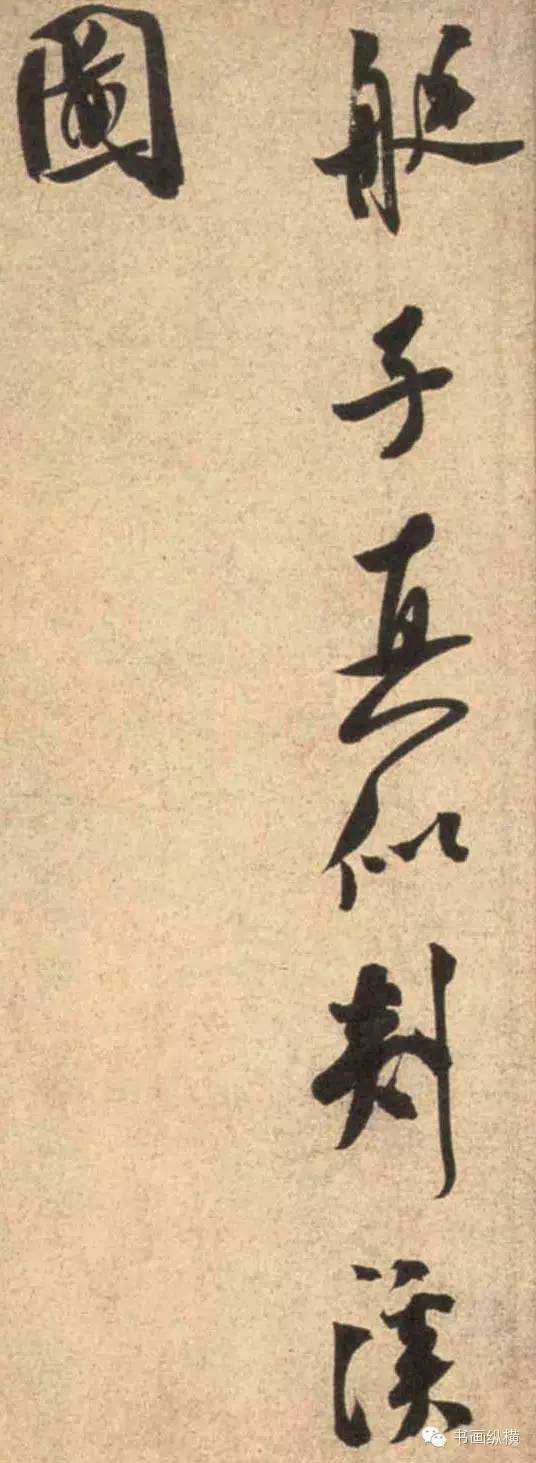 艇子真似剡溪
圖
书画纵横